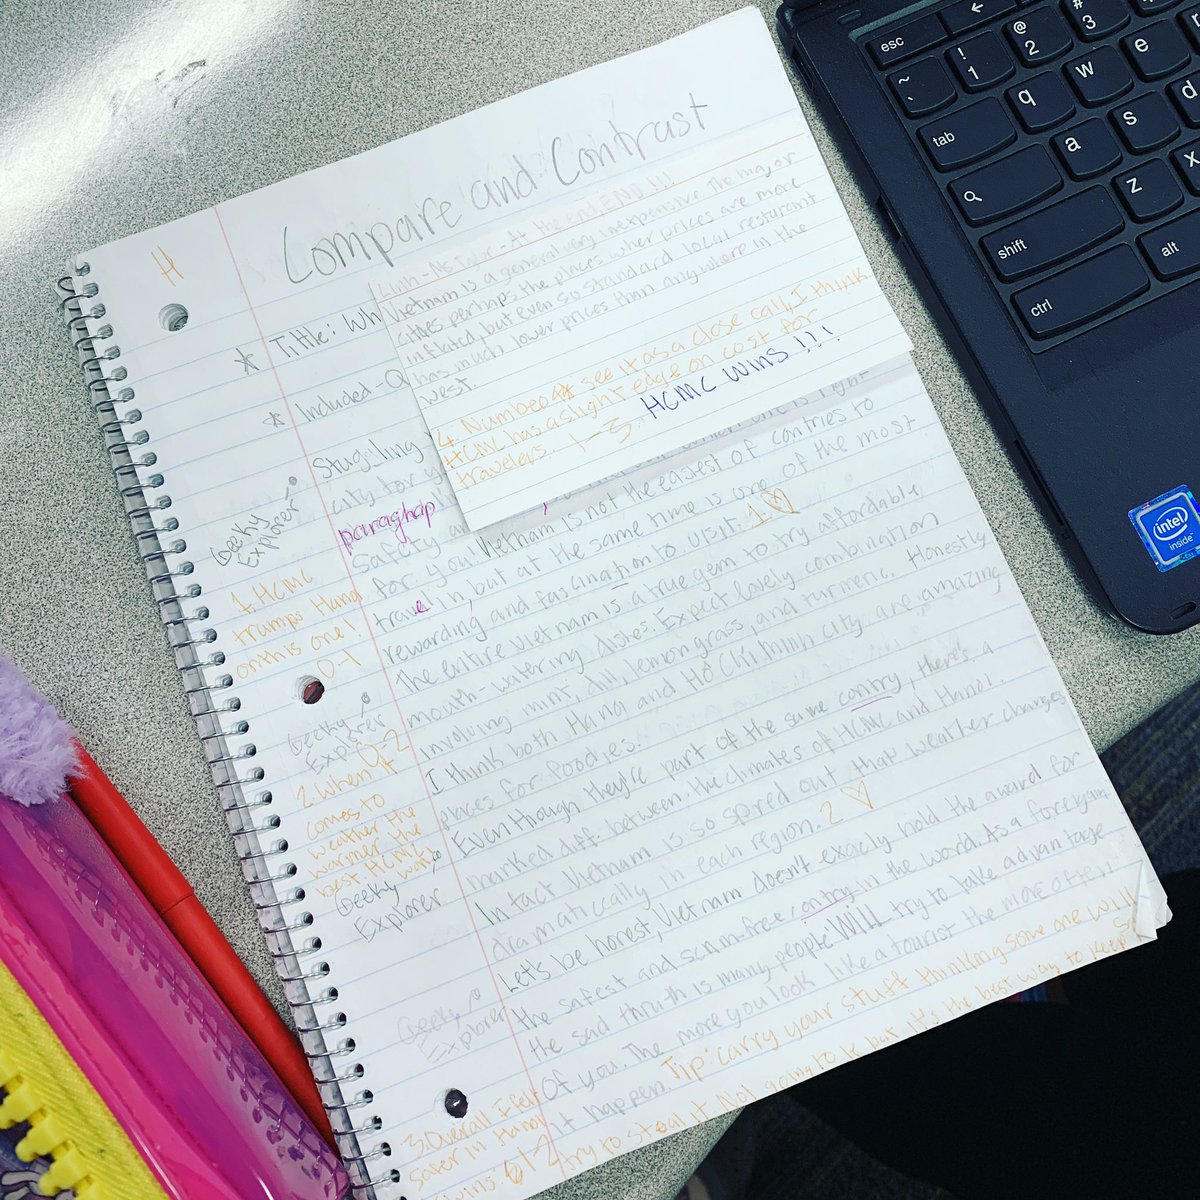 H
Compare and Contrast
* Tittle: Wh
* Included-Q
END!!!
Vietnam is a general very inexpensive. The major
cities perhaps the places wher prices are more
inflated, but even so standard local resturant
has much lower prices than anywhere in the
west.
see it as a close call, I think
has a slight edge on cost for
travelers. 1-3. HCMC WINS!!!
city for y
paraghap
Geeky
Explorer
Vietnam is not the easiest of contries to
travel in, but at the same time is one of the most
rewarding and fascination to visit. 1
The entire Vietnam is a true gem to try affordable,
mouth-watering dishes. Expect lovely combination
involving mint, dill, lemongrass, and turmeric. Honestly
I think both Hanoi and Hồ Chí Minh city are amazing
places for foodies.
Even though they're part of the same contry, there's a
marked diff. between the climates of HCMC and Hanoi.
In fact Vietnam is so spred out that weather changes
dramatically in each region. 2
Let's be honest, Vietnam doesn't exacly hold the award for
the safest and scam-free contry in the world. As a foreigner
the sad thruth is many people WILL try to take advantage
of you. The more you look like a tourist the more often
it happen. Tip: carry your stuff thinking some one will
try to steal it. Not going to lie but it's the best way to keep
1. HCMC
tramps Hanoi
on this one!
0-1
Geeky
Explorer
0-2
2. When it
comes to
weather the
warmer the
best HCMC
Geeky
Explorer
Geeky
Explorer
3. Overall I felt
safer in Hanoi
wins. 1-2
esc
tab
shift
ctrl
alt
! 1
@ 2
# 3
q
w
e
a
s
d
z
x
intel
inside